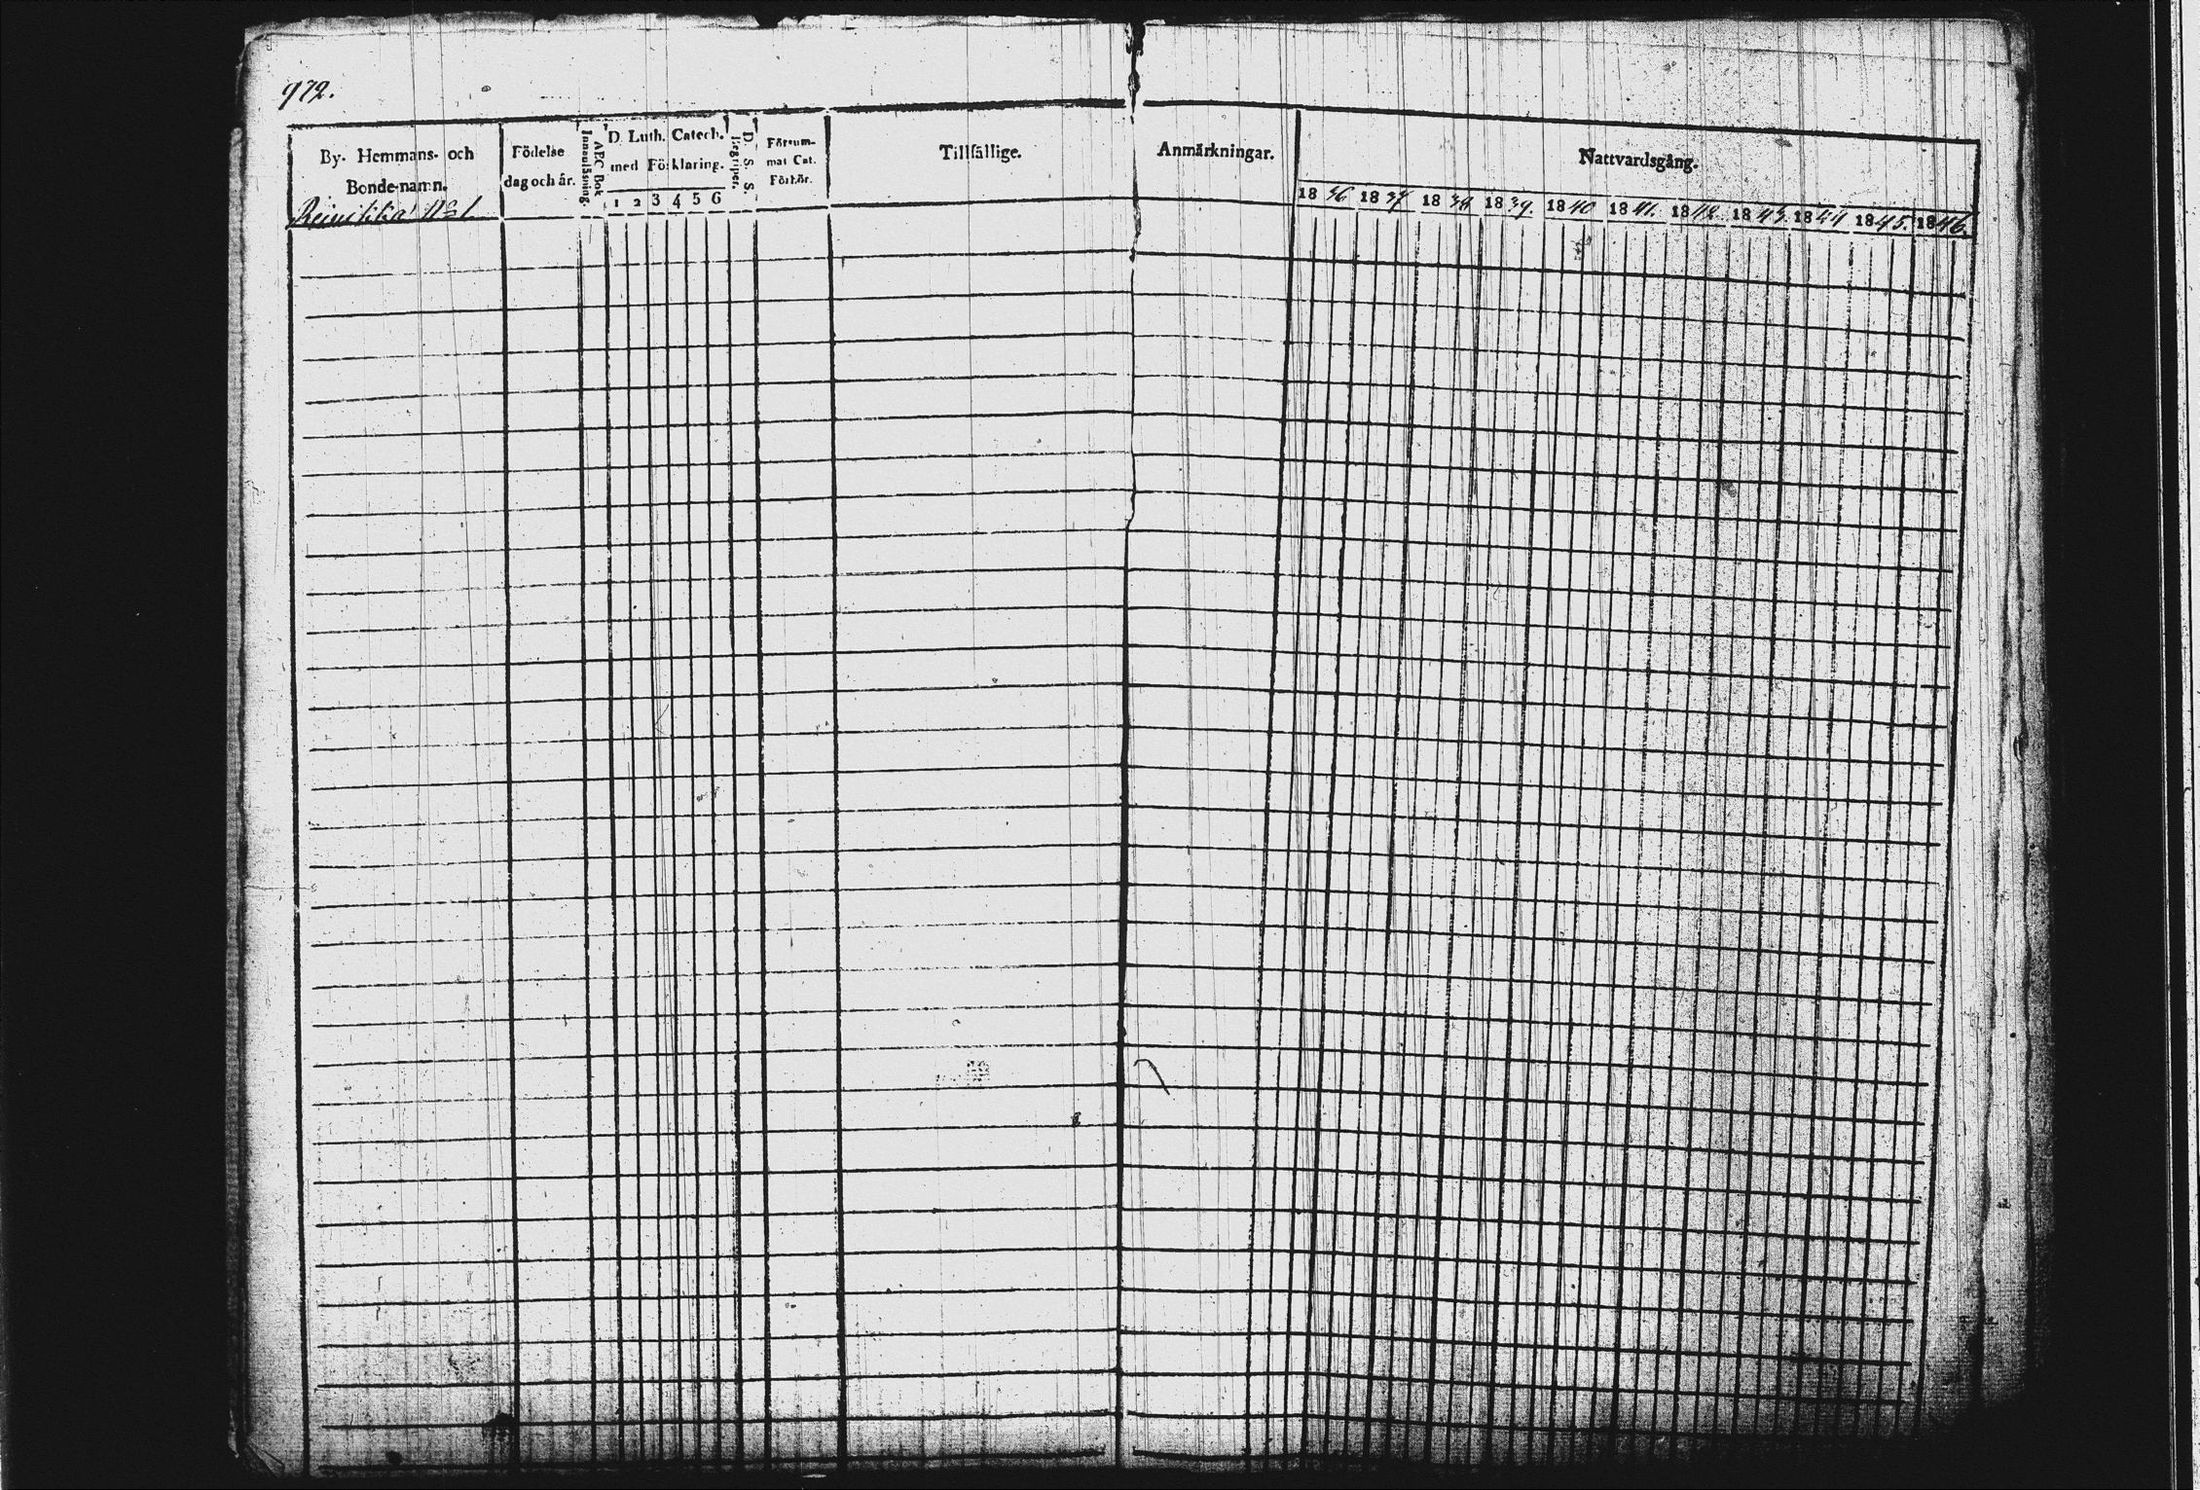 972.
By- Hemmans- och Bonde-namn.
Födelse dag och år.
Innanläsning.
ABC Bok
D. Luth. Catech. med Förklaring.
1 2 3 4 5 6
D. S. S. Begriper.
Försummat Cat. Förhör.
Tillfällige.
Anmärkningar.
Nattvardsgång.
1836 1837 1838 1839. 1840 1841. 1842. 1843. 1844 1845. 1846.
Reinikka No 1